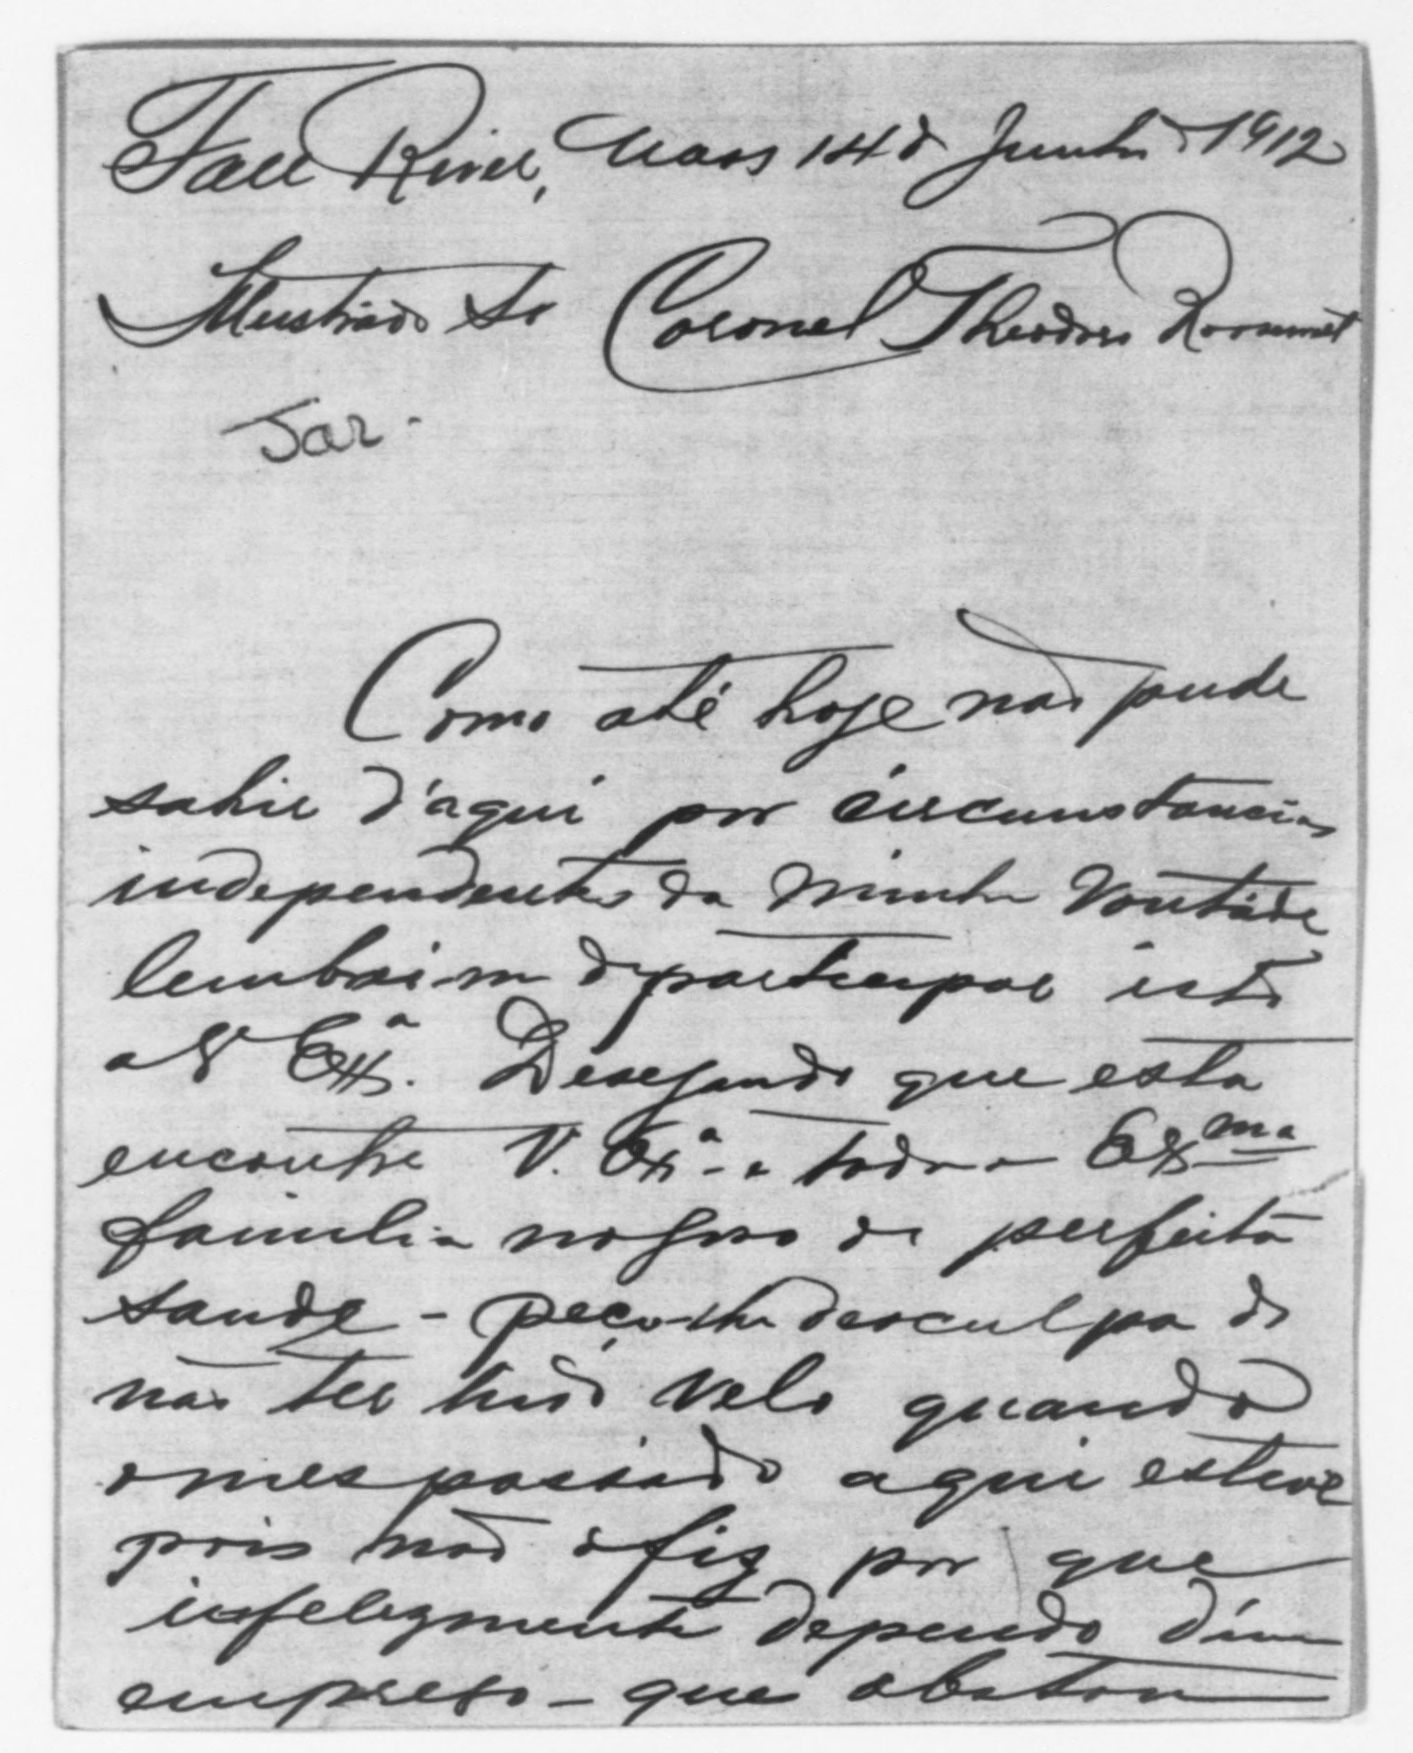 Fall River, Mass 14 d Junho 1912
Illustrado Sr Coronel Theodoro Roosevelt
Jar.
Como até hoje nao pude
sahir d'aqui por circunstancias
independentes da minha vontade
lembrei-m de participar isto
a V Exª. Desejando que esta
encontre V. Exª e toda a Exma
familia no goso de perfeita
saude - peço-lhe desculpa de
não ter hido velo quando
o mes passado aqui esteve
pois não o fiz por que
infelizmente dependo d'um
emprego - que